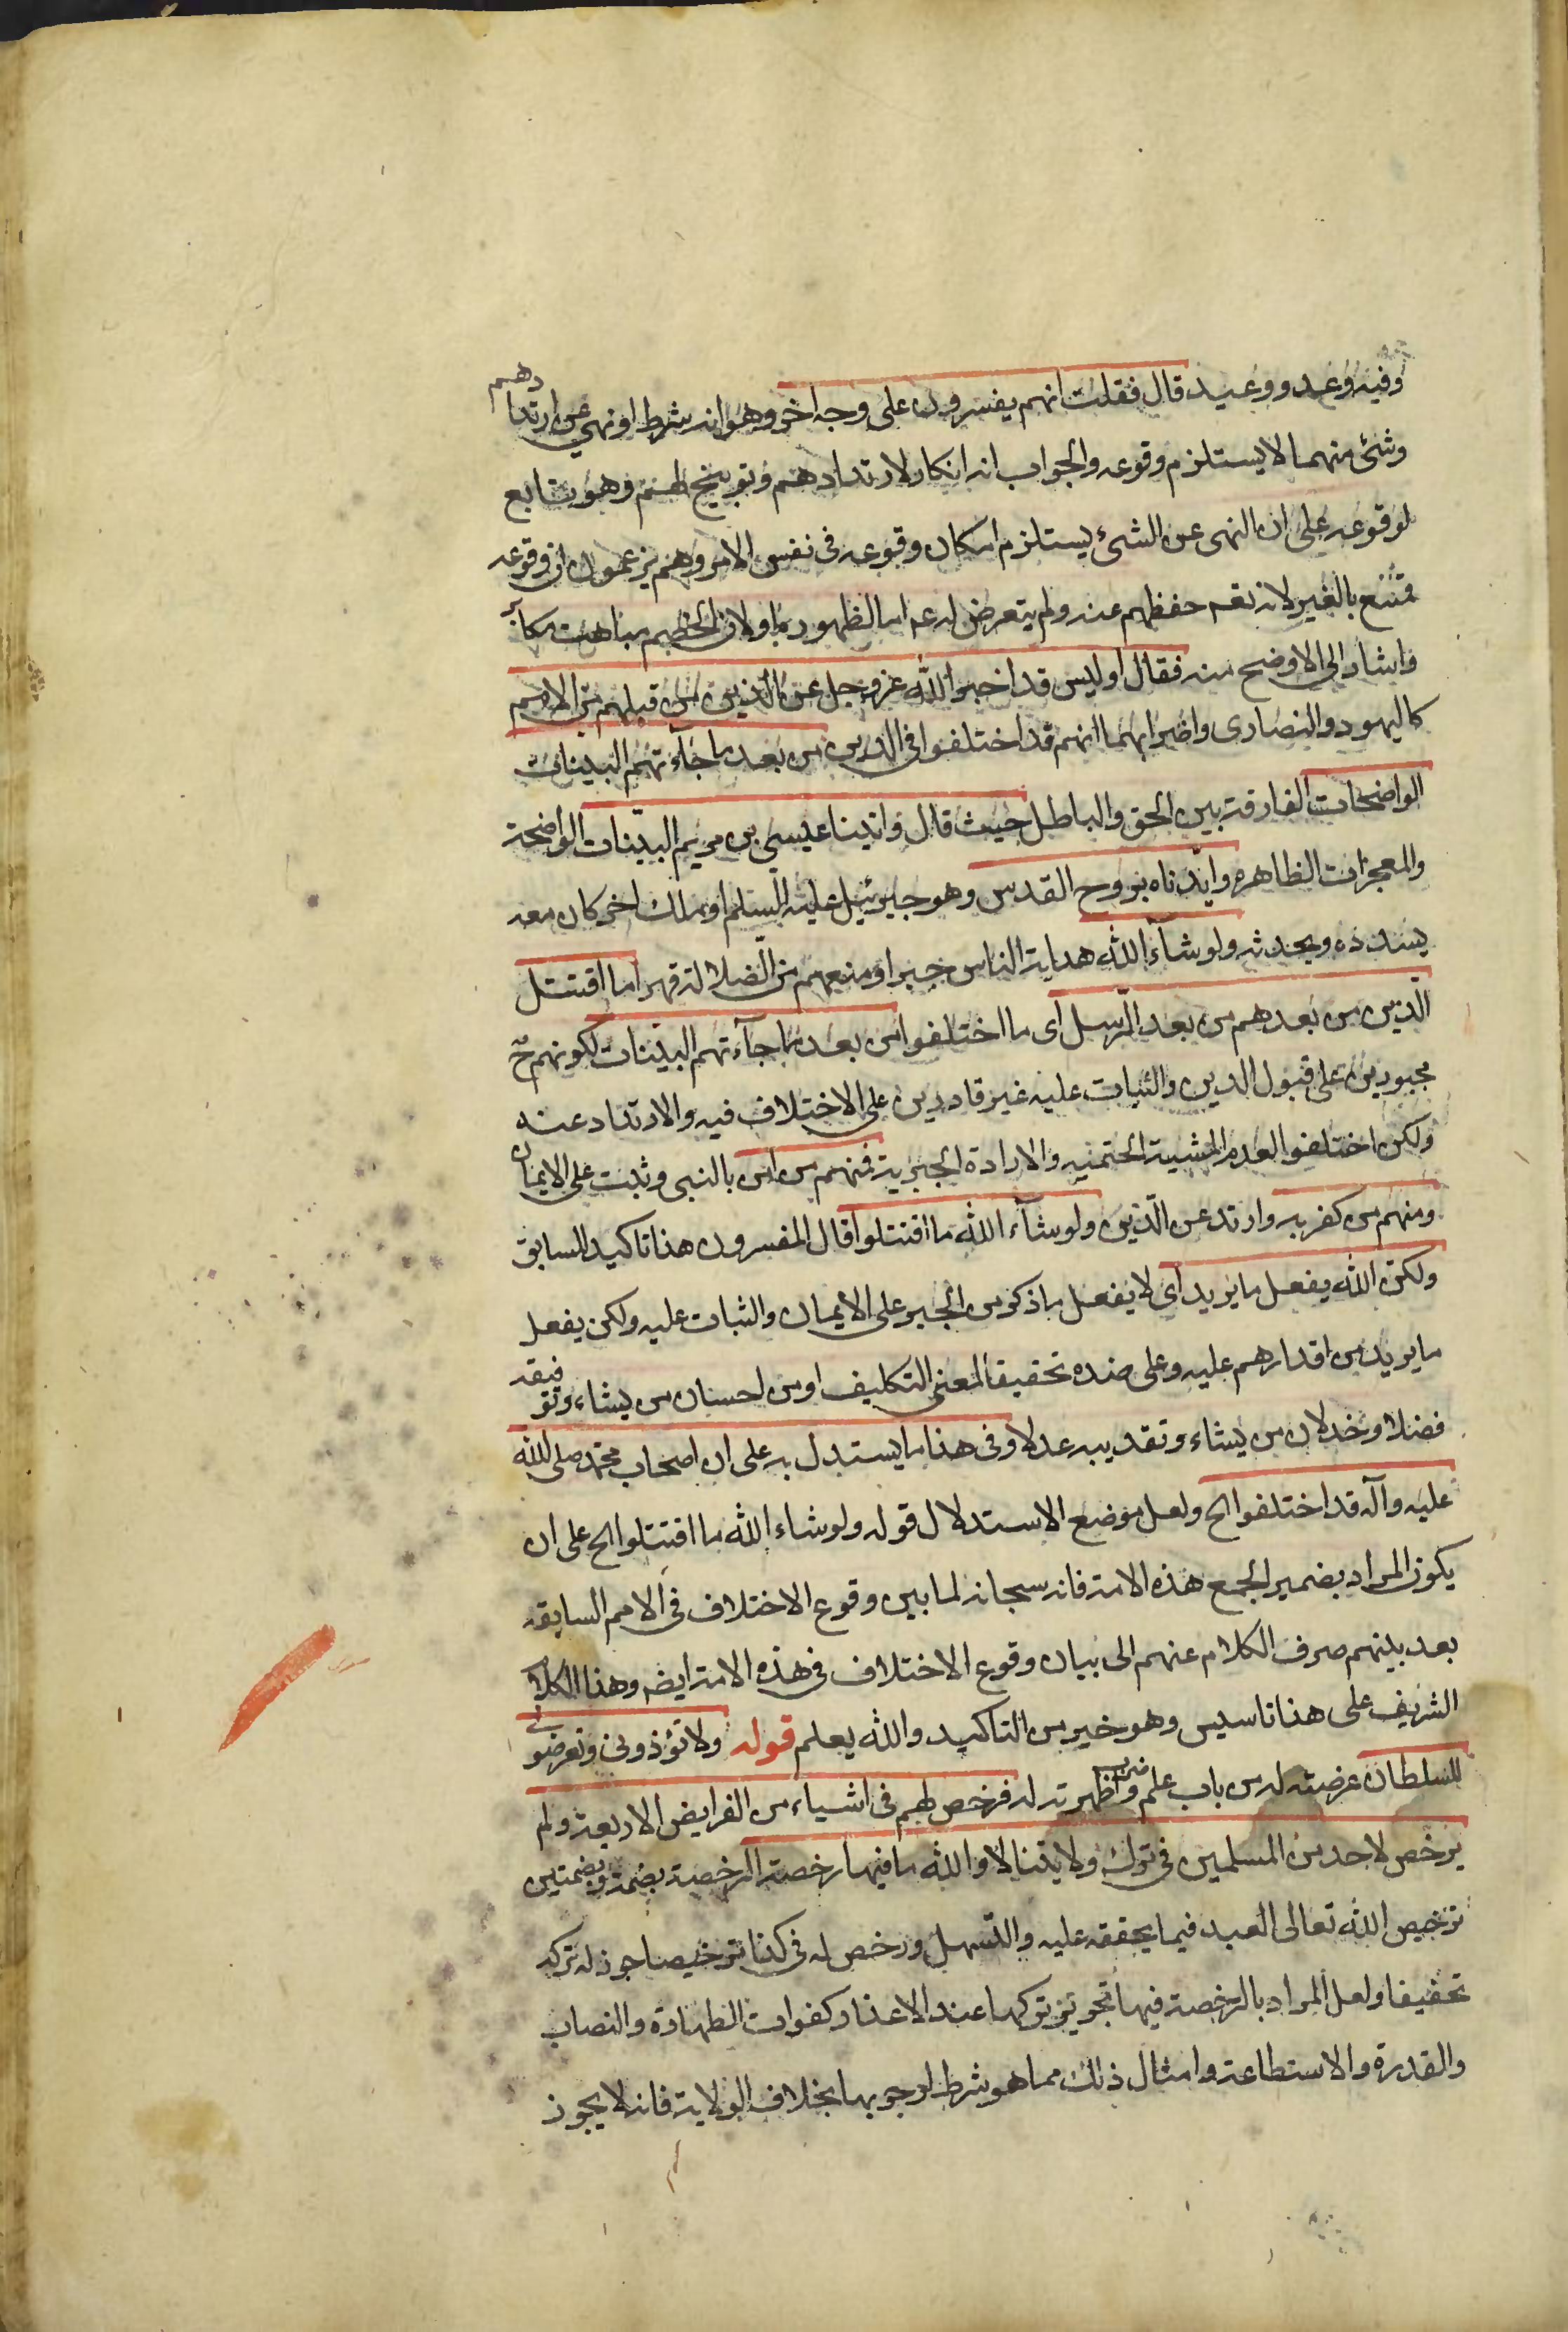 وفيه وعد ووعيد قال فقلت انهم يفسرون على وجه اخر وهو انه شرط او نهي عن ارتدادهم
وشئ منهما لا يستلزم وقوعه والجواب انه انكار لارتدادهم وتوبيخ لهم وهو تابع
لوقوعه على ان النهى عن الشئ يستلزم امكان وقوعه فى نفس الامر وهم يزعمون ان وقوعه
ممتنع بالغير لانه تعم حفظهم عنه ولم يتعرض له عم اما لظهوره او لان الخصم مباهت مكابر
واشار الى الاوضح منه فقال اوليس قد اخبر الله عز وجل عن الذين من قبلهم من الامم
كاليهود والنصارى واضرابهما انهم قد اختلفوا فى الدين من بعد ما جاءتهم البينات
الواضحات الفارقة بين الحق والباطل حيث قال واتينا عيسى بن مريم البينات الواضحة
والمعجزات الظاهره وايدناه بروح القدس وهو جبرئيل عليه السلم او ملك اخر كان معه
يسدده ويحدثه ولو شآء الله هداية الناس جبرا ومنعهم من الضلالة قهرا ما اقتتل
الذين من بعدهم من بعد الرسل اى ما اختلفوا من بعد ما جآءتهم البينات لكونهم ح
مجبورين على قبول الدين والثبات عليه غير قادرين على الاختلاف فيه والارتداد عنه
ولكن اختلفوا لعدم المشية الحتمية والارادة الجبرية فمنهم من امن بالنبى وثبت على الايمان
ومنهم من كفر به وارتد عن الدين ولو شآء الله ما اقتتلوا قال المفسرون هذا تاكيد للسابق
ولكن الله يفعل ما يريد اى لا يفعل ما ذكر من الجبر على الايمان والثبات عليه ولكن يفعل
ما يريد من اقدارهم عليه وعلى ضده تحقيقا لمعنى التكليف او من احسان من يشاء وتوفيقه
فضلا وخذلان من يشاء وتعذيبه عدلا وفى هذا ما يستدل به على ان اصحاب محمد صلى الله
عليه وآله قد اختلفوا الح ولعل موضع الاستدلال قوله ولو شاء الله ما اقتتلوا الح على ان
يكون المراد بضمير الجمع هذه الامة فانه سبحانه لما بين وقوع الاختلاف فى الامم السابقه
بعد بينهم صرف الكلام عنهم الى بيان وقوع الاختلاف فى هذه الامة ايضه وهذا الكلام
الشريف على هذا تاسيس وهو خير من التاكيد والله يعلم قوله ولا تؤذونى وتعرضونى
للسلطان عرضته له من باب علم وضرب اظهرته له فرخص لهم فى اشياء من الفرايض الاربعة ولم
يرخص لاحد من المسلمين فى ترك ولايتنا لا والله ما فيها رخصة الرخصة بضمة وبضمتين
ترخيص الله تعالى العبد فيما يخففه عليه والتسهيل ورخص له فى كذا ترخيصا جوز له تركه
تخفيفا ولعل المراد بالرخصة فيها تجويز تركها عند الاعذار كفوات الطهارة والنصاب
والقدرة والاستطاعة وامثال ذلك مما هو شرط لوجوبها بخلاف الولاية فانه لا يجوز